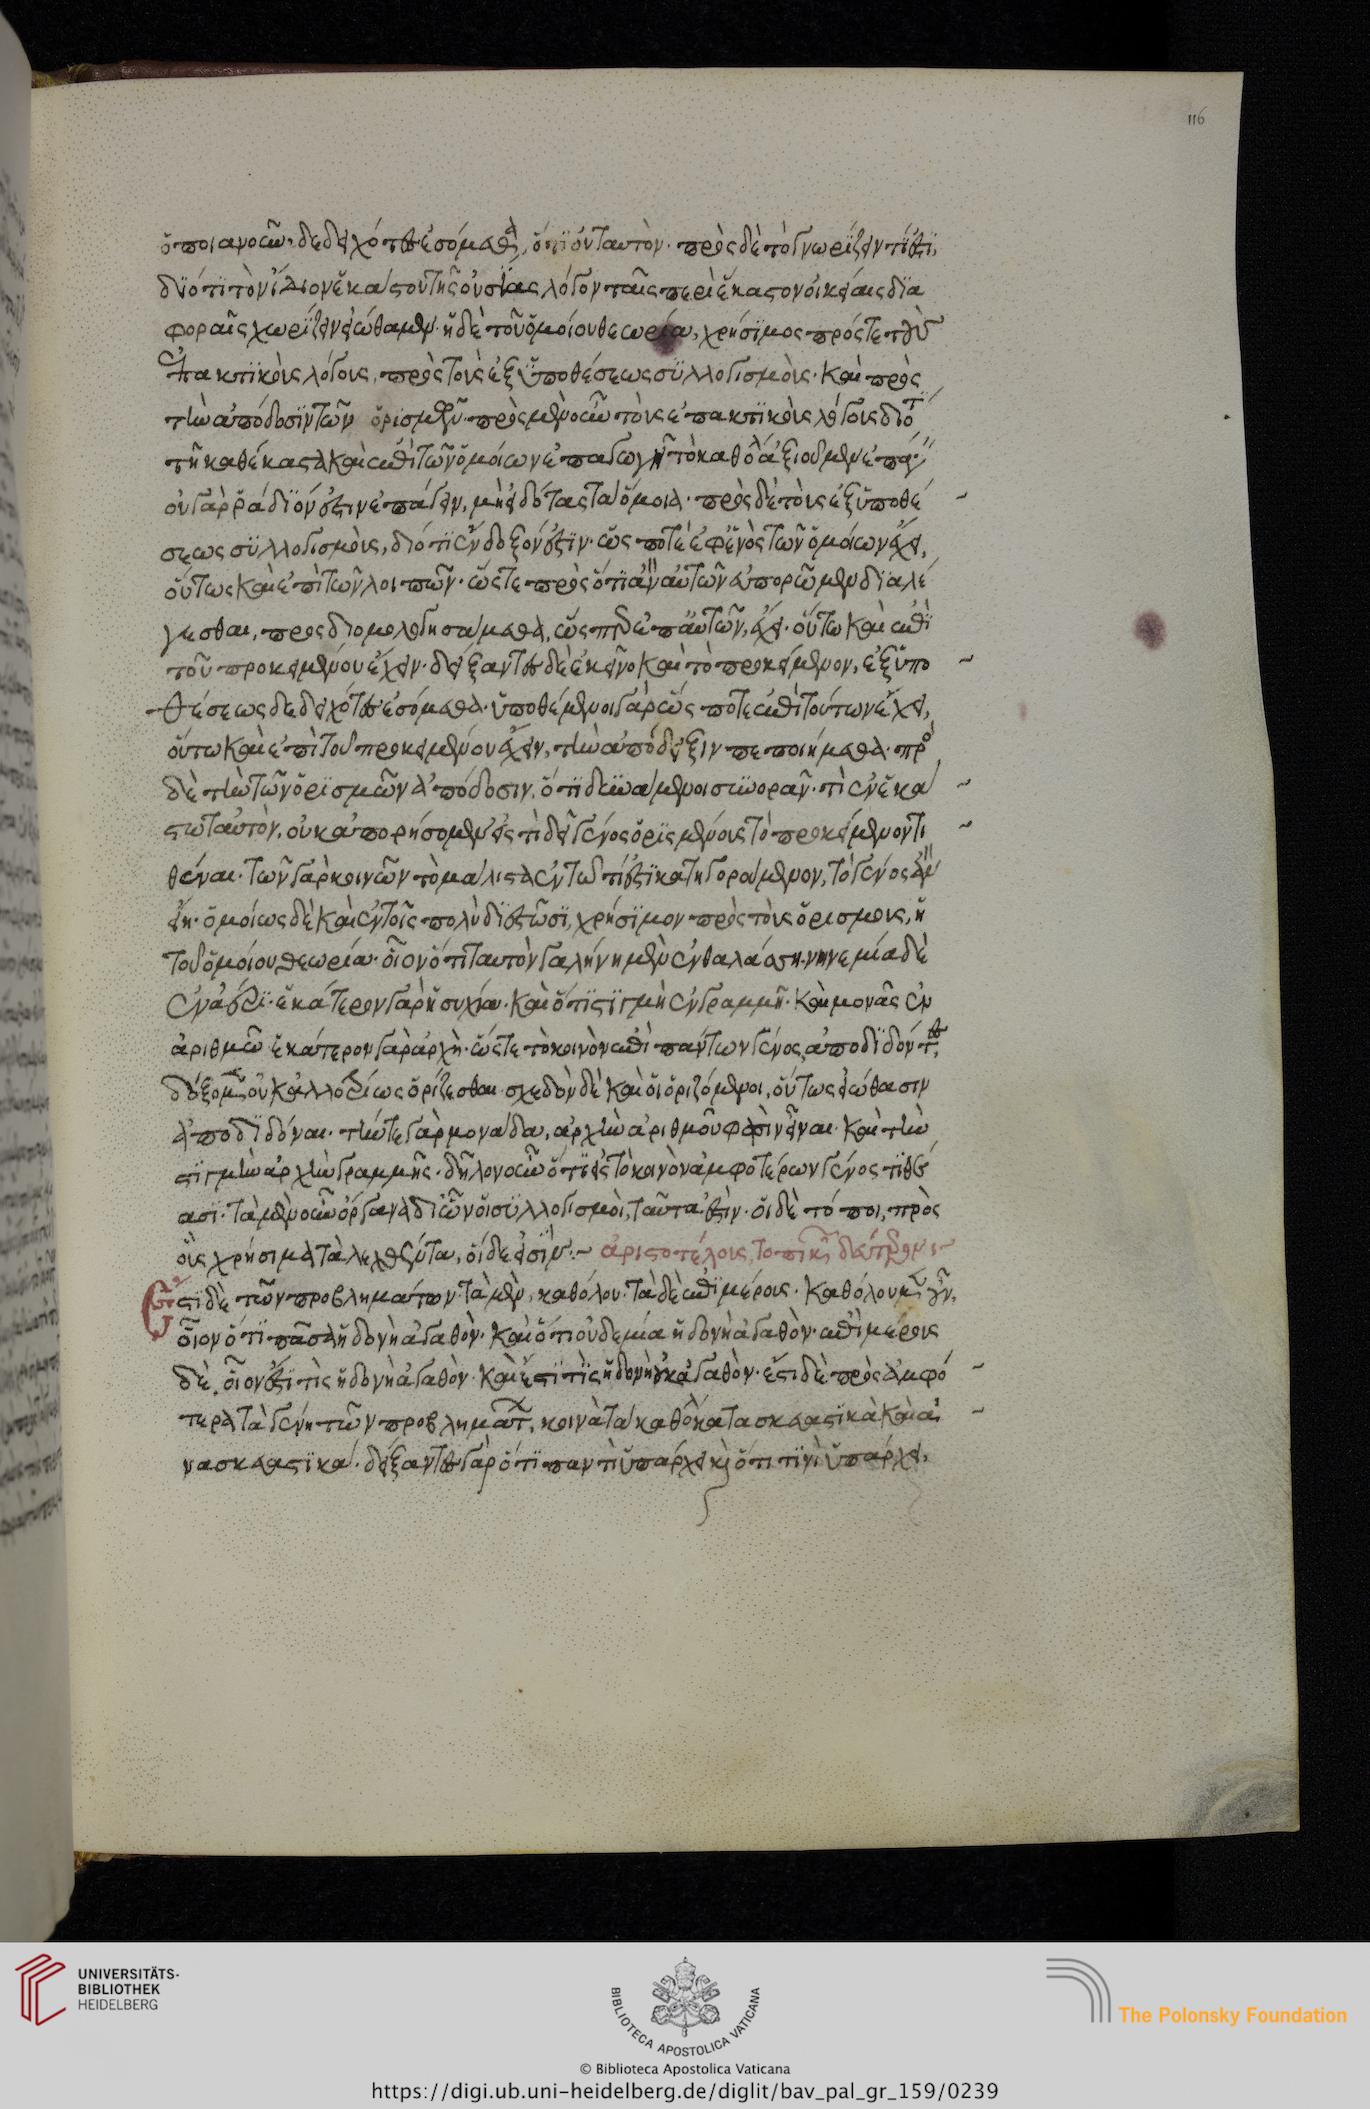 116
ὁποιανοῦν· δεδειχότες ἐσόμεθα, ὅτι οὐ ταυτὸν· πρὸς δὲ τὸ γνωρίζειν τί ἐστι,
διότι τὸν ἴδιον ἑκάστου τῆς οὐσίας λόγον ταῖς περὶ ἕκαστον οἰκείαις δια
φοραῖς χωρίζειν εἰώθαμεν. ἡ δὲ τοῦ ὁμοίου θεωρία, χρήσιμος πρός τε τοὺς
ἐπακτικοὺς λόγους, πρὸς τοὺς ἐξ ὑποθέσεως συλλογισμοὺς· καὶ πρὸς
τὴν ἀπόδοσιν τῶν ὁρισμῶν. πρὸς μὲν οὖν τοὺς ἐπακτικοὺς λόγους διότι
τῇ καθέκαστα καὶ ἐπὶ τῶν ὁμοίων ἐπαγωγῇ τὸ καθόλου ἀξιοῦμεν ἐπά
οὐ γὰρ ῥάδιόν ἐστιν ἐπάγειν, μὴ εἰδότας τὰ ὅμοια. πρὸς δὲ τοὺς ἐξ ὑποθέ
σεως συλλογισμοὺς, διότι ἔνδοξόν ἐστιν· ὥς ποτε ἐφ' ἑνὸς τῶν ὁμοίων ἔχει,
οὕτως καὶ ἐπὶ τῶν λοιπῶν· ὥστε πρὸς ὅτι ἂν αὐτῶν ἀπορῶμεν διαλέ
γεσθαι, προσδιομολογησάμεθα, ὥς πῃδε ἐπ' αὐτῶν, ἔχει· οὕτω καὶ ἐπὶ
τοῦ προκειμένου ἔχειν· δείξαντες δὲ ἐκεῖνο καὶ τὸ προκείμενον, ἐξ ὑπο
θέσεως δεδειχότες ἐσόμεθα· ὑποθέμενοι γὰρ ὥς ποτε ἐπὶ τούτων ἔχει,
οὕτω καὶ ἐπὶ τοῦ προκειμένου ἔχειν, τὴν ἀπόδειξιν πεποιήμεθα. πρὸς
δὲ τὴν τῶν ὁρισμῶν ἀπόδοσιν, ὅτι δυνάμενοι συνορᾶν· τὶ ἐν ἑκά
στω ταυτὸν, οὐκ ἀπορήσομεν εἰς τὶ δεῖ γένος ὁριζομένους τὸ προκείμενον τι
θέναι. τῶν γὰρ κοινῶν τὸ μάλιστα ἐν τῶ τί ἐστι κατηγορούμενον, τὸ γένος ἂν
εἴη. ὁμοίως δὲ καὶ ἐν τοῖς πολὺ διεστῶσι, χρήσιμον πρὸς τοὺς ὁρισμοὺς, ἡ
τοῦ ὁμοίου θεωρία· οἷον ὅτι ταυτὸν γαλήνη μὲν ἐν θαλάσση. νηνεμία δὲ
ἐν ἀέρι. ἑκάτερον γὰρ ἡσυχία· καὶ ὅτι στιγμὴ ἐν γραμμῇ· καὶ μονὰς ἐν
ἀριθμῶ ἑκάτερον γὰρ ἀρχὴ· ὥστε τὸ κοινὸν ἐπὶ πάντων γένος ἀποδιδόντες,
δόξομεν οὐκ ἀλλοτρίως ὁρίζεσθαι. σχεδὸν δὲ καὶ οἱ ὁριζόμενοι, οὕτως εἰώθασιν
ἀποδιδόναι. τήν τε γὰρ μονάδα, ἀρχὴν ἀριθμοῦ φασὶν εἶναι. καὶ τὴν
στιγμὴν ἀρχὴν γραμμῆς. δῆλον οὖν ὅτι εἰς τὸ κοινὸν ἀμφοτέρων γένος τιθέ
ασι. τὰ μὲν οὖν ὄργανα δι' ὧν οἱ συλλογισμοὶ, ταῦτα ἐστὶν. οἱ δὲ τόποι, πρὸς
οὓς χρήσιμα τὰ λεχθέντα, οἵδε εἰσίν: ~ ἀριστοτέλους τοπικῶν δεύτερον:~
Ἔστι δὲ τῶν προβλημάτων· τὰ μὲν, καθόλου. τὰ δὲ ἐπὶ μέρους. καθόλου μὲν οὖν,
οἷον ὅτι πᾶσα ἡδονὴ ἀγαθὸν· καὶ ὅτι οὐδεμία ἡδονὴ ἀγαθὸν. ἐπὶ μέρους
δὲ, οἷον ἔστι τὶς ἡδονὴ ἀγαθὸν· καὶ ἔστι τὶς ἡδονὴ οὐκ ἀγαθὸν. ἔστι δὲ πρὸς ἀμφό
τερα τὰ γένη τῶν προβλημάτων, κοινὰ τὰ καθόλου κατασκευαστικὰ καὶ ἀ
νασκευαστικά. δείξαντες γὰρ ὅτι παντὶ ὑπάρχει καὶ ὅτι τινὶ ὑπάρχει,
UNIVERSITÄTS-
BIBLIOTHEK
HEIDELBERG
BIBLIOTECA APOSTOLICA VATICANA
© Biblioteca Apostolica Vaticana
The Polonsky Foundation
https://digi.ub.uni-heidelberg.de/diglit/bav_pal_gr_159/0239